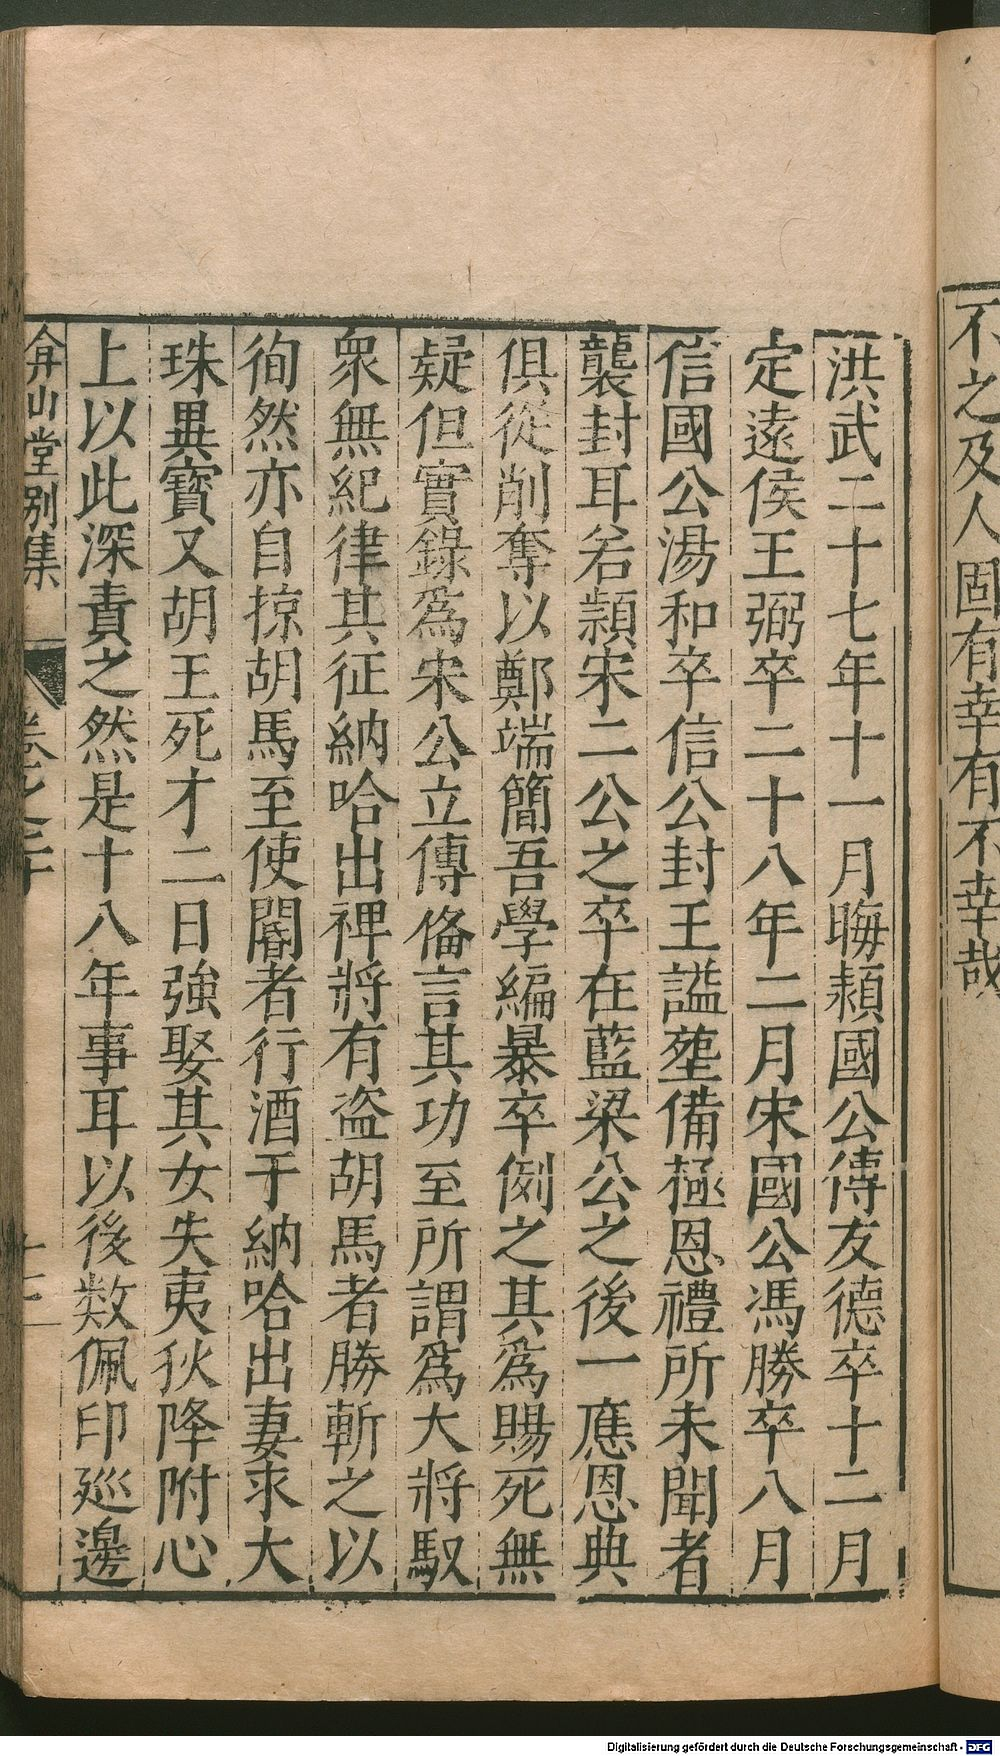 不之及人固有幸有不幸哉
洪武二十七年十一月晦潁國公傅友德卒十二月
定遠侯王弼卒二十八年二月宋國公馮勝卒八月
信國公湯和卒信公封王謚塟備極恩禮所未聞者
襲封耳若潁宋二公之卒在藍梁公之後一應恩典
俱從削奪以鄭端簡吾學編暴卒例之其爲賜死無
疑但實錄爲宋公立傳俻言其功至所謂爲大將馭
衆無紀律其征納哈出裨將有盗胡馬者勝斬之以
徇然亦自掠胡馬至使閽者行酒于納哈出妻求大
珠異寳又胡王死才二日強娶其女失夷狄降附心
上以此深責之然是十八年事耳以後数佩印廵邊
弇山堂别集 卷之二十
Digitalisierung gefördert durch die Deutsche Forschungsgemeinschaft - DFG